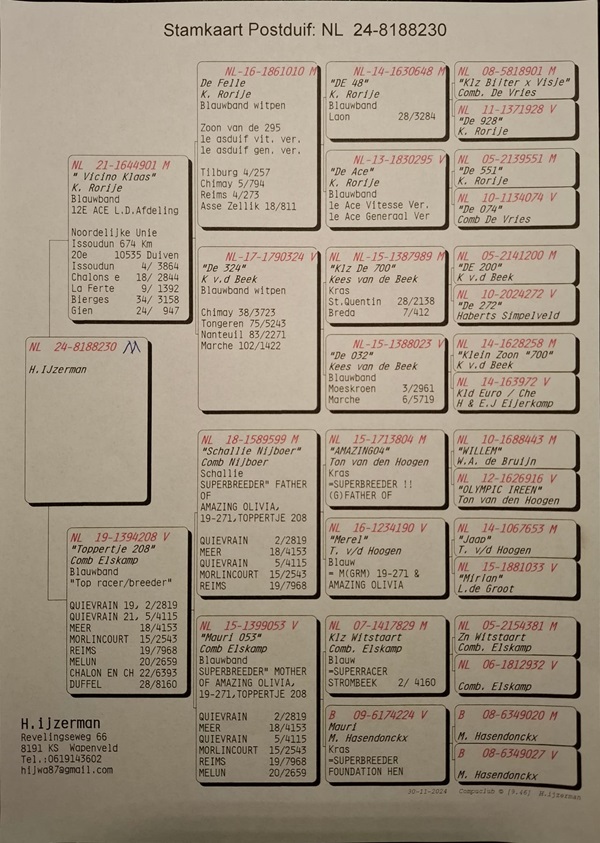 Stamkaart Postduif: NL 24-8188230
NL 24-8188230 M
H.IJzerman
NL 21-1644901 M
" Vicino Klaas"
K. Rorije
Blauwband
12E ACE L.D.Afdeling
Noordelijke Unie
Issoudun 674 Km
20e 10535 Duiven
Issoudun 4/ 3864
Chalons e 18/ 2844
La Ferte 9/ 1392
Bierges 34/ 3158
Gien 24/ 947
NL 19-1394208 V
"Toppertje 208"
Comb Elskamp
Blauwband
"Top racer/breeder"
QUIEVRAIN 19, 2/2819
QUIEVRAIN 21, 5/4115
MEER 18/4153
MORLINCOURT 15/2543
REIMS 19/7968
MELUN 20/2659
CHALON EN CH 22/6393
DUFFEL 28/8160
NL-16-1861010 M
De Felle
K. Rorije
Blauwband witpen
Zoon van de 295
1e asduif vit. ver.
1e asduif gen. ver.
Tilburg 4/257
Chimay 5/794
Reims 4/273
Asse Zellik 18/811
NL-17-1790324 V
"De 324"
K v.d Beek
Blauwband witpen
Chimay 38/3723
Tongeren 75/5243
Nanteuil 83/2271
Marche 102/1422
NL 18-1589599 M
"Schallie Nijboer"
Comb Nijboer
Schallie
SUPERBREEDER" FATHER
OF
AMAZING OLIVIA,
19-271,TOPPERTJE 208
QUIEVRAIN 2/2819
MEER 18/4153
QUIEVRAIN 5/4115
MORLINCOURT 15/2543
REIMS 19/7968
NL 15-1399053 V
"Mauri 053"
Comb Elskamp
Blauwband
SUPERBREEDER" MOTHER
OF AMAZING OLIVIA,
19-271,TOPPERTJE 208
QUIEVRAIN 2/2819
MEER 18/4153
QUIEVRAIN 5/4115
MORLINCOURT 15/2543
REIMS 19/7968
MELUN 20/2659
NL-14-1630648 M
"DE 48"
K. Rorije
Blauwband
Laon 28/3284
NL-13-1830295 V
"De Ace"
K. Rorije
Blauwband
1e Ace Vitesse Ver.
1e Ace Generaal Ver
NL NL-15-1387989 M
"Klz De 700"
Kees van de Beek
Kras
St.Quentin 28/2138
Breda 7/412
NL-15-1388023 V
"De 032"
Kees van de Beek
Blauwband
Moeskroen 3/2961
Marche 6/5719
NL 15-1713804 M
"AMAZING04"
Ton van den Hoogen
Kras
=SUPERBREEDER !!
(G)FATHER OF
NL 16-1234190 V
"Merel"
T. v/d Hoogen
Blauw
= M(GRM) 19-271 &
AMAZING OLIVIA
NL 07-1417829 M
Klz Witstaart
Comb. Elskamp
Blauw
=SUPERRACER
STROMBEEK 2/ 4160
B 09-6174224 V
Mauri
M. Hasendonckx
Kras
=SUPERBREEDER
FOUNDATION HEN
NL 08-5818901 M
"Klz Bilter x Visje"
Comb. De Vries
NL 11-1371928 V
"De 928"
K. Rorije
NL 05-2139551 M
"De 551"
K. Rorije
NL 10-1134074 V
"De 074"
Comb De Vries
NL 05-2141200 M
"DE 200"
K v.d Beek
NL 10-2024272 V
"De 272"
Haberts Simpelveld
NL 14-1628258 M
"Klein Zoon "700"
K v.d Beek
NL 14-163972 V
Kld Euro / Che
H & E.J Eijerkamp
NL 10-1688443 M
"WILLEM"
W.A. de Bruijn
NL 12-1626916 V
"OLYMPIC IREEN"
Ton van den Hoogen
NL 14-1067653 M
"Jaap"
T. v/d Hoogen
NL 15-1881033 V
"Mirian"
L.de Groot
NL 05-2154381 M
Zn Witstaart
Comb. Elskamp
NL 06-1812932 V
Comb. Elskamp
B 08-6349020 M
M. Hasendonckx
B 08-6349027 V
M. Hasendonckx
H.ijzerman
Revelingseweg 66
8191 KS Wapenveld
Tel.:0619143602
hijwa87@gmail.com
30-11-2024 Compuclub © [9.46] H.ijzerman